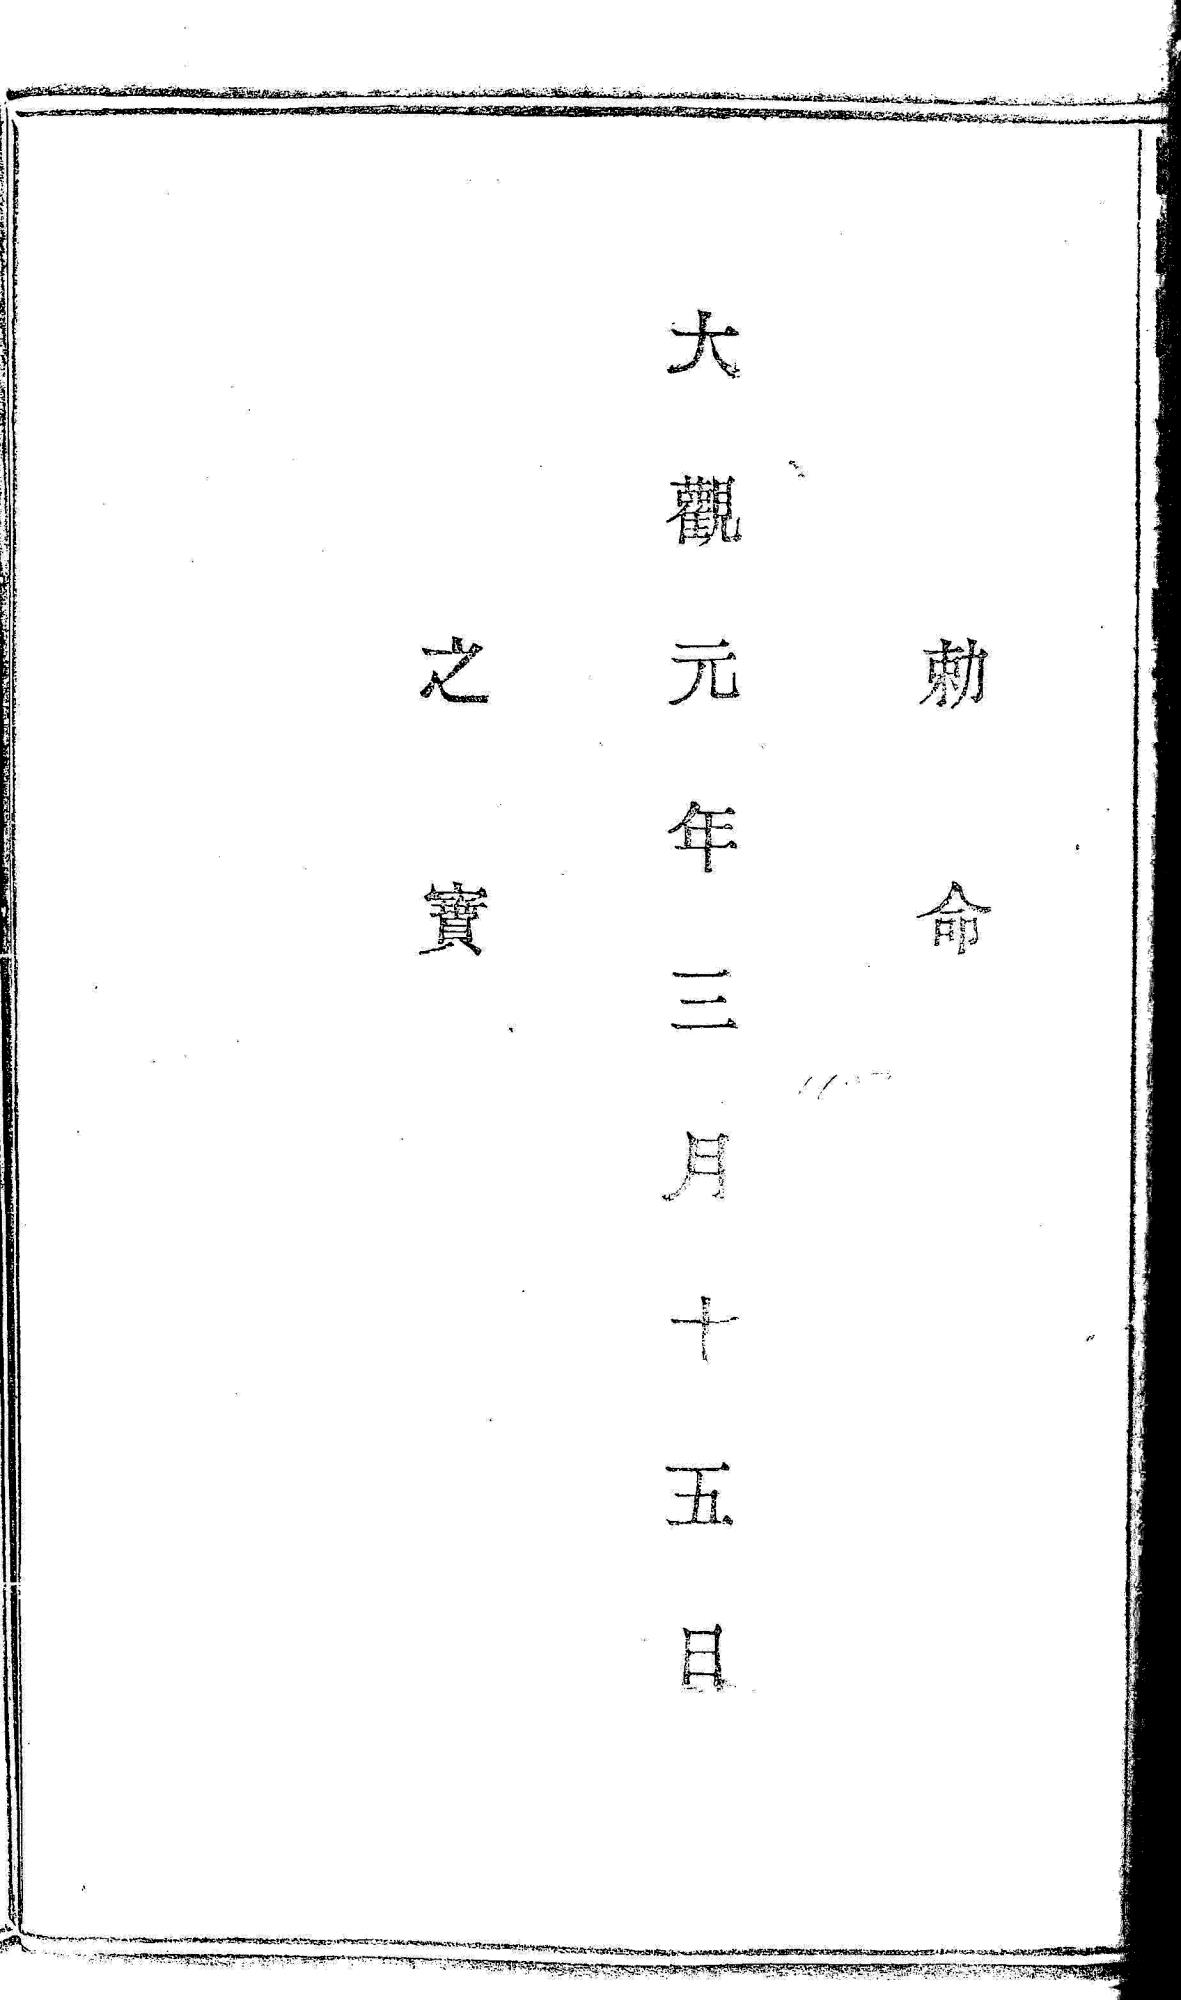 勅命
大觀元年三月十五日
之寶